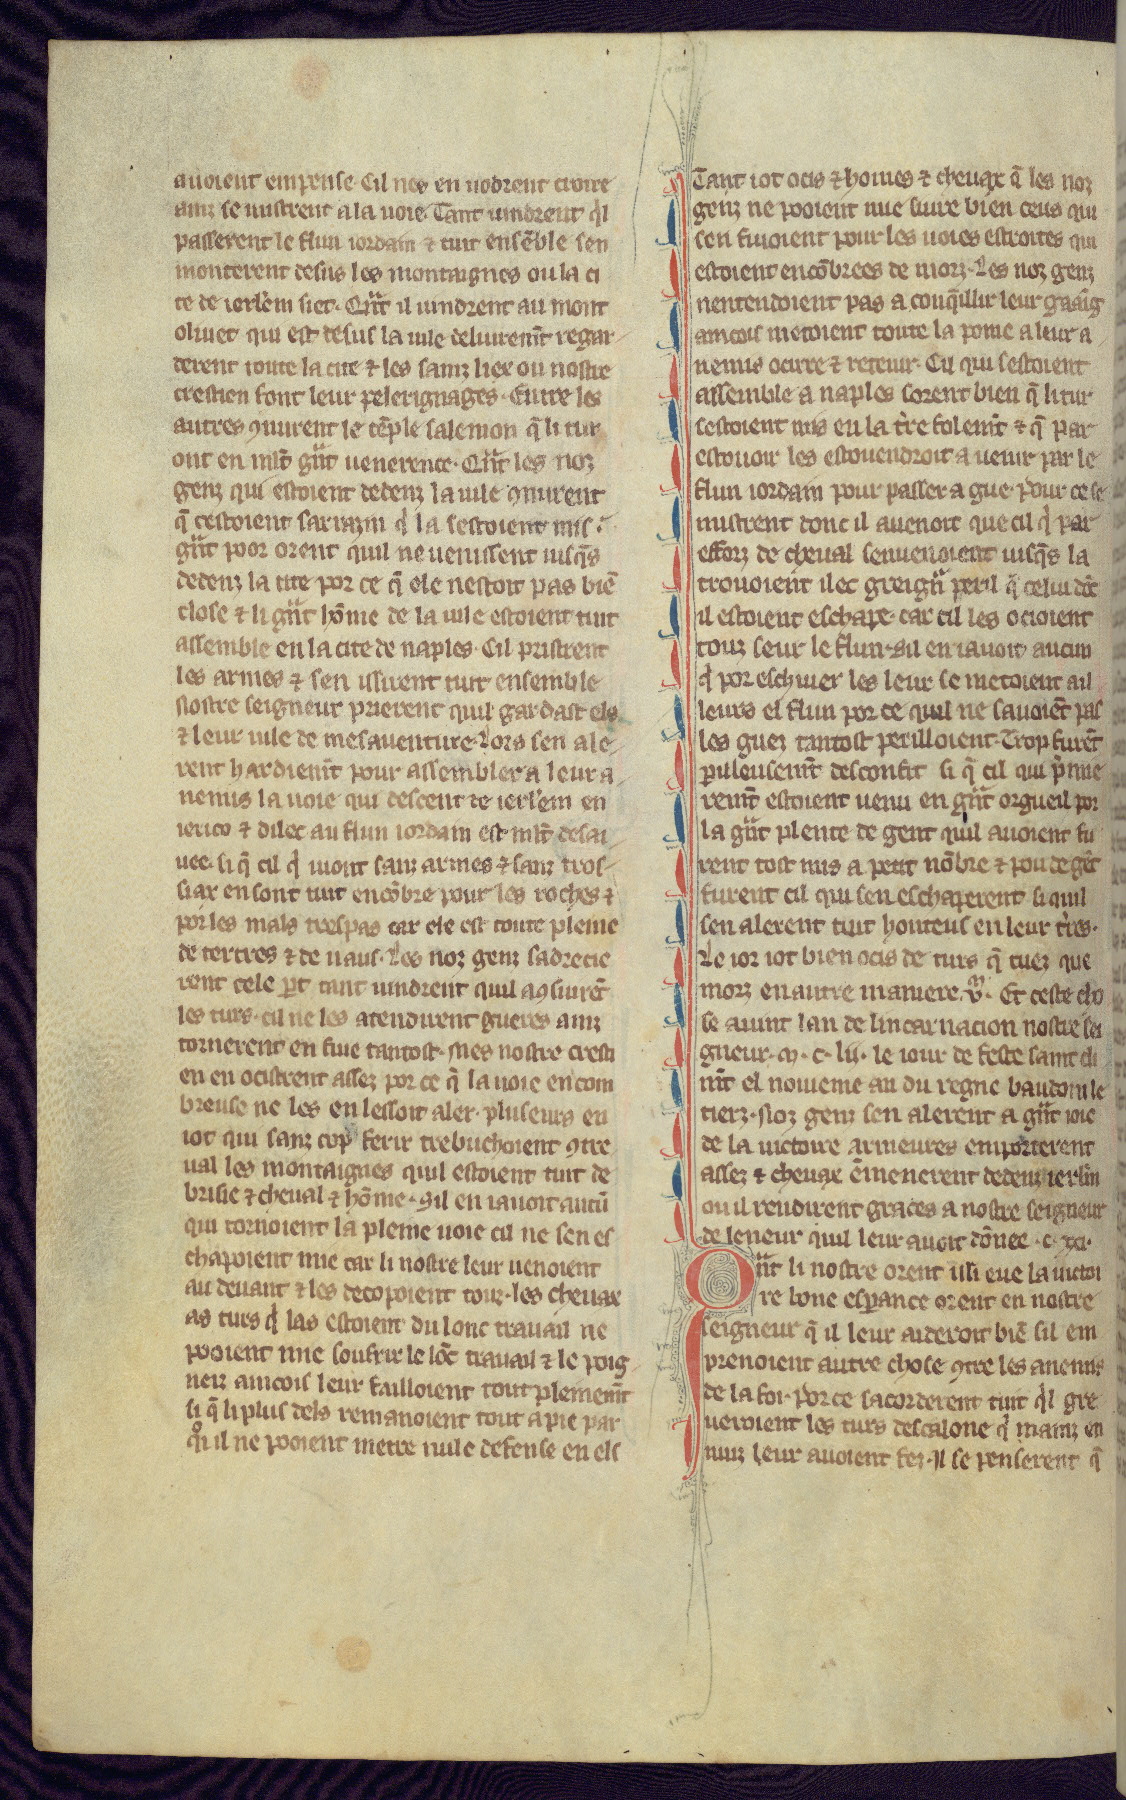 avoient empense. Cil nes en vodrent croire
ainz se mistrent a la voie. Tant vindrent q̉l
passerent le flun iordain ⁊ tuit ensẽble sen
monterent desus les montaignes ou la ci
te de ierl'em siet. Qñt il vindrent au mont
olivet qui est desus la vile delivremẽt regar
derent toute la cite ⁊ les sainz liex ou nostre
crestien font leur pelerignages. Entre les
autres ꝯnurent le tẽple salemon q̃ li tur
ont en ml̃t gñt venerence. Qñt les noz
genz qui estoient dedenz la vile ꝯnurent
q̃ cestoient sarrazin q̉ la sestoient mis
gñt poor orent quil ne venissent iusq̃s
dedenz la cite por ce q̃ ele nestoit pas biẽ
close ⁊ li gñt hõme de la vile estoient tuit
assemble en la cite de naples. Cil pristrent
les armes ⁊ sen issirent tuit ensemble
Nostre seigneur prierent quil gardast els
⁊ leur vile de mesaventure. Lors sen ale
rent hardiemẽt pour assembler a leur a
nemis la voie qui descent de ierl'em en
ierico ⁊ dilec au flun iordain est ml̃t desai
vee. si q̃ cil q̉ i vont sanz armes ⁊ sanz tros
siax en sont tuit encõbre pour les roches ⁊
por les mals trespas car ele est toute pleine
de tertres ⁊ de vaus. Les noz genz sadrecie
rent cele ꝑt tant vindrent quil aꝯsivrẽt
les turs. cil ne les atendirent gueres ainz
tornerent en fuie tantost. Mes nostre cresti
en en ocistrent assez por ce q̃ la voie encom
breuse ne les en lessoit aler. pluseurs en
i ot qui sanz cop ferir trebuchoient ꝯtre
val les montaignes quil estoient tuit de
brisie ⁊ cheval ⁊ hõme. Sil en i avoit aucũ
qui tornoient la pleine voie cil ne sen es
chapoient mie car li nostre leur venoient
au devant ⁊ les decopoient touz. les chevax
as turs q̉ las estoient du lonc travail ne
pooient mie soufrir le lõc travail ⁊ le poig
neiz aincois leur failloient tout pleinemẽt
si q̃ li plus dels remanoient tout a pie par
qͦi il ne pooient metre nule defense en els
Tant i ot ocis ⁊ homes ⁊ chevax q̃ les noz
genz ne pooient mie sivre bien ceus qui
sen fuioient pour les voies estroites qui
estoient encõbrees de morz. Les noz genz
nentendoient pas a couq̃illir leur gaaig
aincois metoient toute la pome a leur a
nemis ocirre ⁊ retenir. Cil qui sestoient
assemble a naples sorent bien q̃ li tur
sestoient mis en la t̃re folemẽt ⁊ q̃ par
estovoir les estovendroit a venir par le
flun iordain pour passer a gue. Pour ce se
mistrent donc il avenoit que cil q̉ par
efforz de cheval senvenoient iusq̃s la
trovoient ilec greign̉ peril q̃ celui dõt
il estoient eschape. car cil les ocioient
touz seur le flun. Sil en i avoit aucun
q̉ por eschiver les leur se metoient ail
leurs el flun por ce quil ne savoiẽt pas
les guez tantost perilloient. Trop furẽt
ꝑuleusemẽt desconfit si q̃ cil qui p̉mie
remẽt estoient venu en gñt orgueil por
la gñt plente de gent quil avoient fu
rent tost mis a petit nõbre ⁊ pou de gẽt
furent cil qui sen eschaperent si quil
sen alerent tuit honteus en leur t̃res.
Le ior i ot bien ocis de turs q̃ tuez que
morz en autre maniere .v.ͫ Et ceste cho
se avint lan de lincarnacion nostre sei
gneur .m. c. lii. le iour de feste saint cli
mẽt el novieme an du regne baudoin le
tierz. Noz genz sen alerent a gñt ioie
de la victoire armeures emporterent
assez ⁊ chevax ẽmenerent dedenz ierl'm
ou il rendirent graces a nostre seigneur
de leneur quil leur avoit dõnee. c. xx.
Qñt li nostre orent issi eue la victoi
re bone esperance orent en nostre
seigneur q̃ il leur aideroit biẽ sil em
prenoient autre chose ꝯtre les anemis
de la foi. Por ce sacorderent tuit q̉l gre
veroient les turs descalone q̉ mainz en
nuiz leur avoient fez. Il se penserent q̃